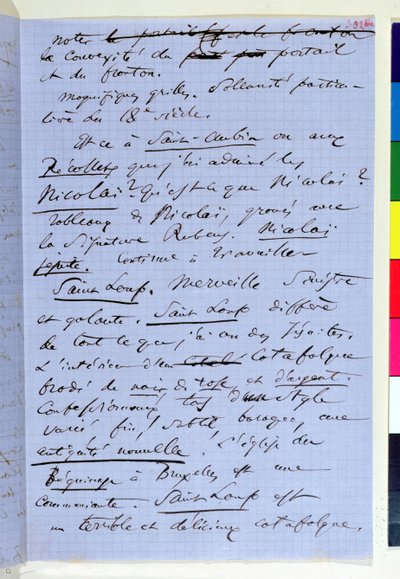 noter le portail et le fronton
la convexité du portail
et du fronton.
magnifiques grilles. Solennité particu-
lière du 18e siècle.
Est ce à Saint-Aubin ou aux
Récollets que j'ai admiré les
Nicolaï? Qu'est ce que Nicolaï?
Tableaux de Nicolaï, gravés avec
la signature Rubens. Nicolaï
jésuite. continue à travailler
Saint Loup. Merveille sinistre
et galante. Saint Loup diffère
de tout ce que j'ai vu des Jésuites.
L'intérieur d'un catafalque
brodé de noir, de rose, et d'argent.
Confessionnaux, tous d'un style
varié, fin, subtil, baroque, une
antiquité nouvelle. L'église du
Béguinage à Bruxelles est une
communiante. Saint Loup est
un terrible et délicieux catafalque.